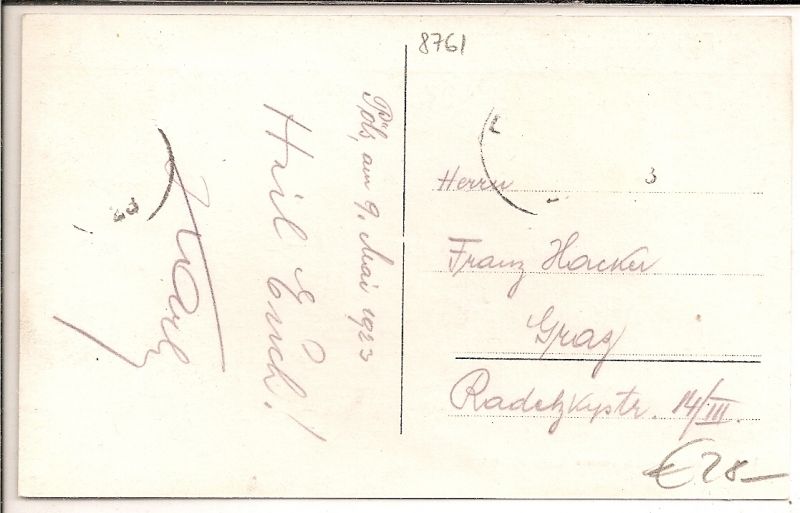 8761
Pöls, am 9. Mai 1923
Heil Euch!
Karl
23
3
Herrn
Franz Hacker
Graz
Radetzkystr. 14/III.
€ 28—